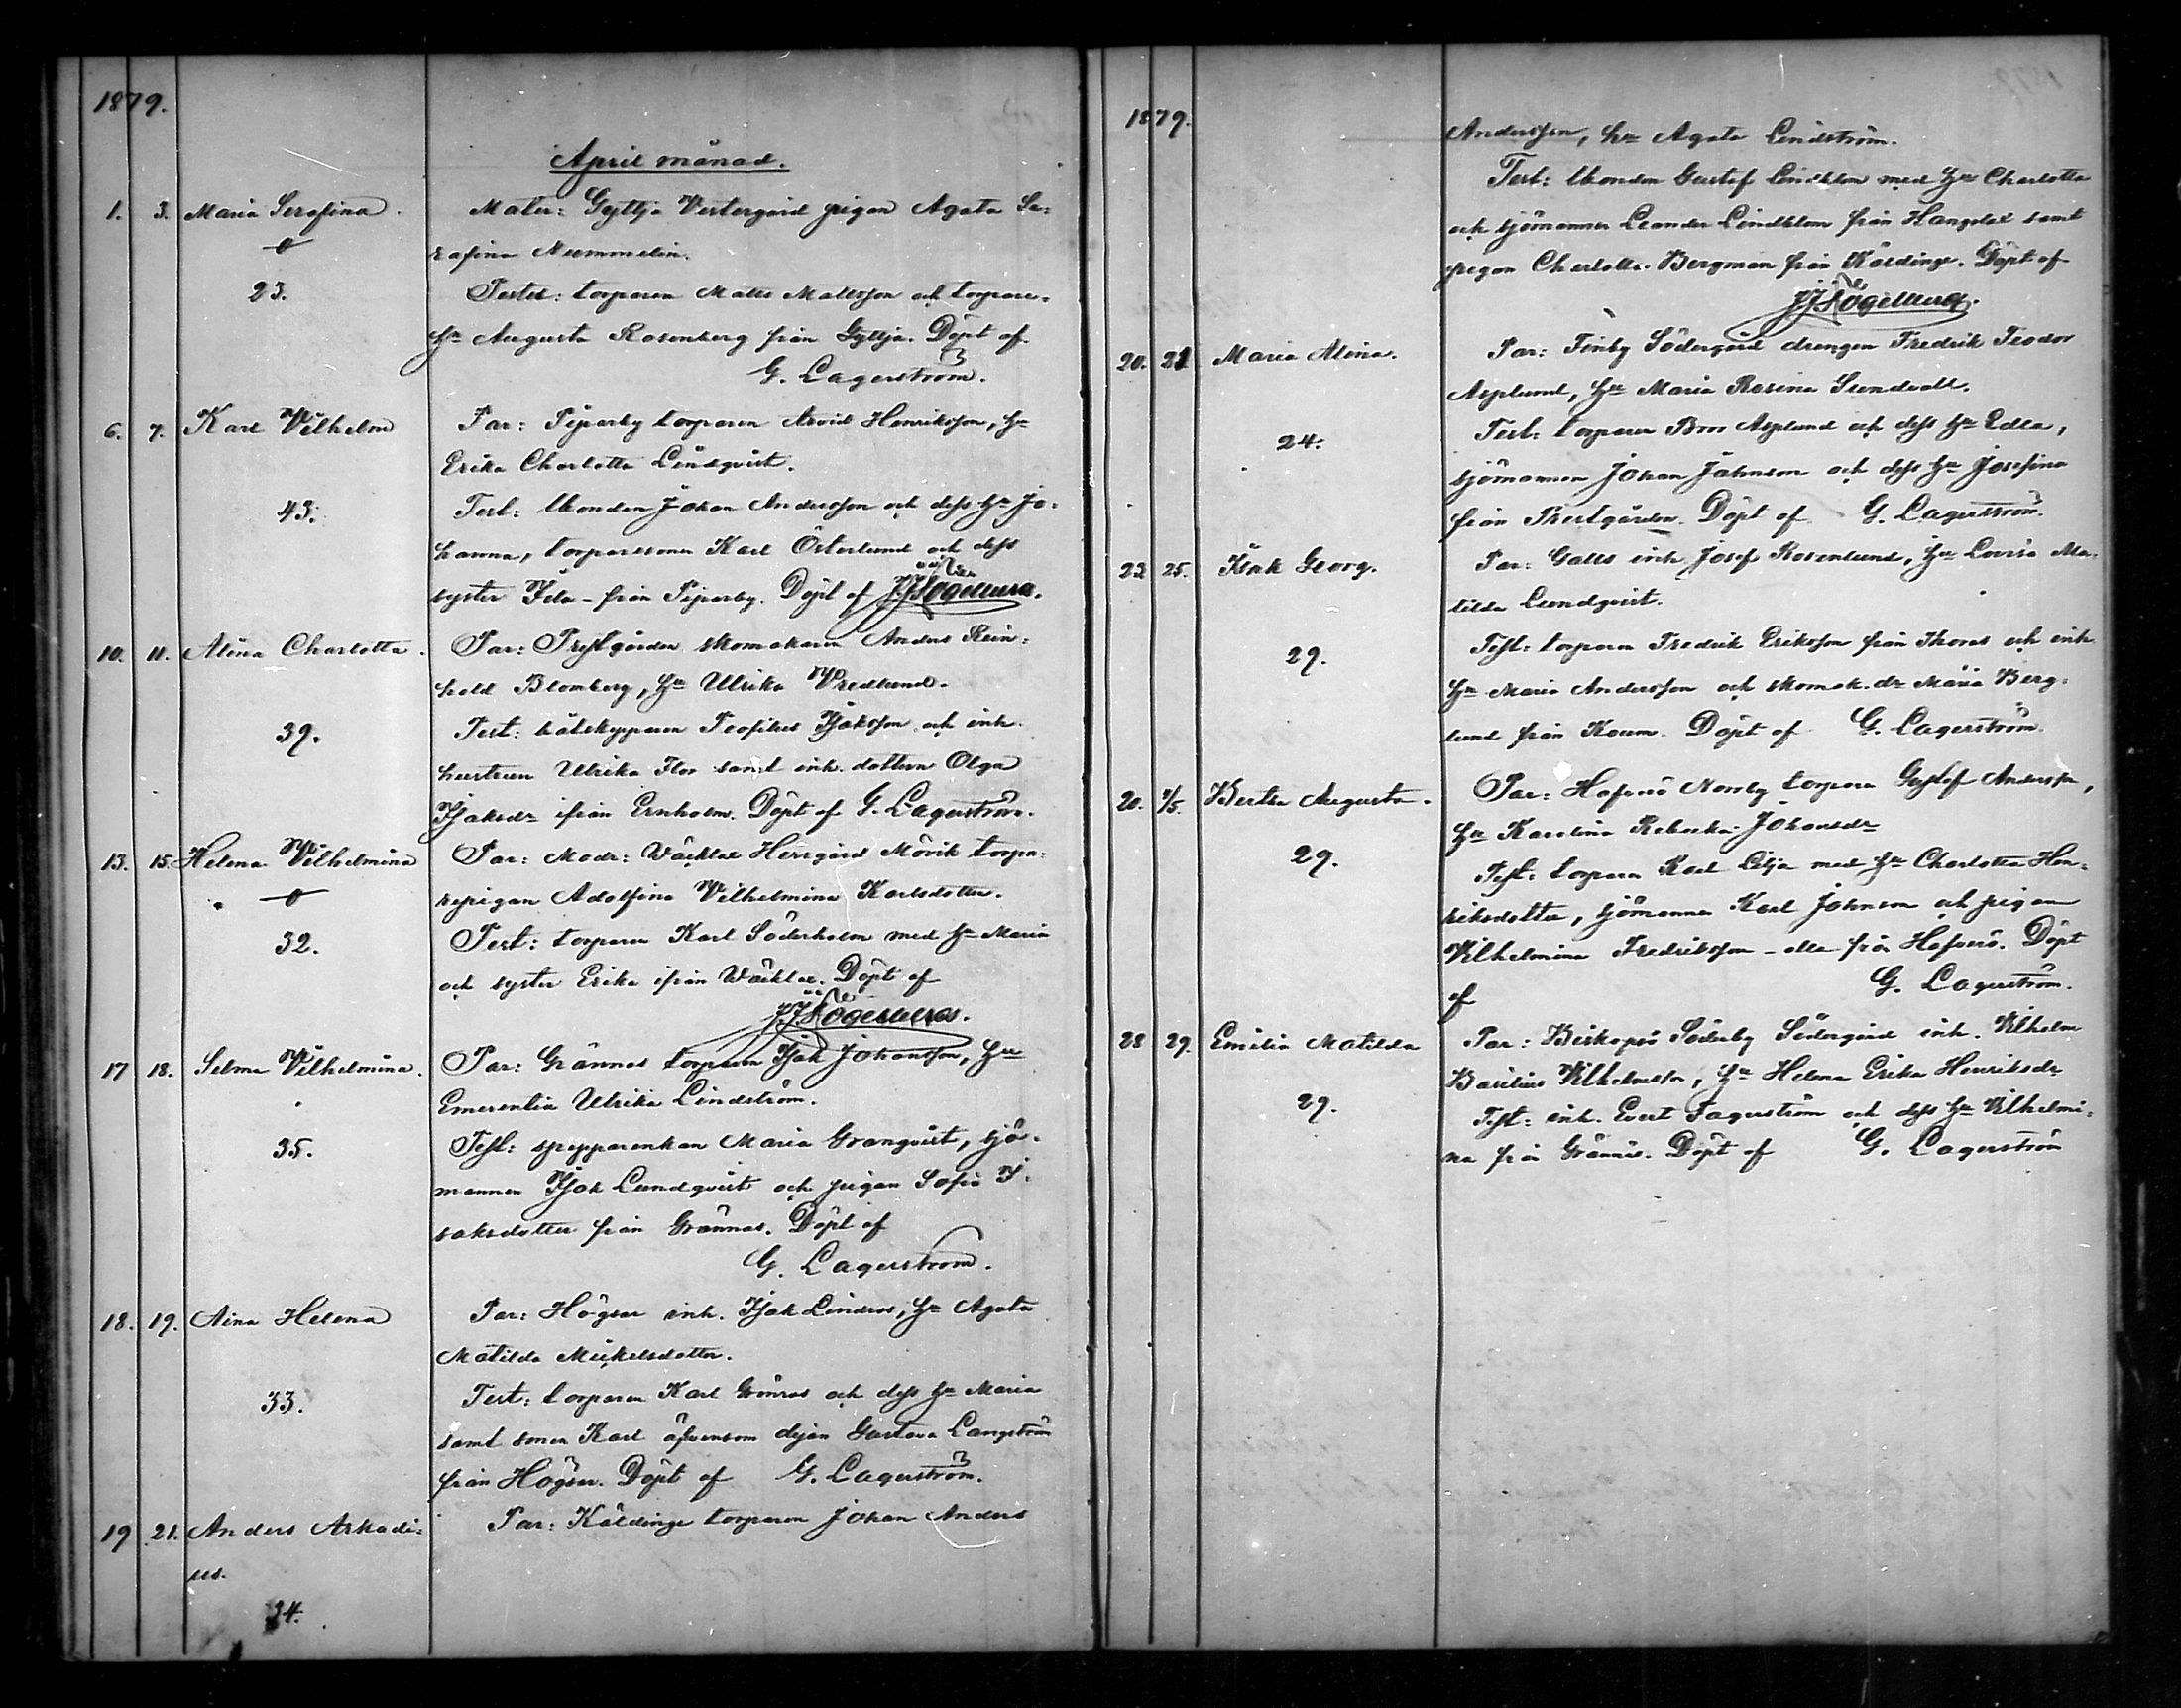 1879.
April månad.
1. 3. Maria Serafina.
23.
Mater: Gyttja Vestergård pigan Agata Se-
rafina Nummelin.
Testes: torparen Matts Mattsson och torpare-
hu Augusta Rosenberg från Gyttja. Döpt af
G. Lagerström.
6. 7. Karl Vilhelm
43.
Par: Piparby torparen Arvid Henriksson, hu
Erika Charlotta Lindqvist.
Test: bonden Johan Andersson och dess hu Jo-
hanna, torparesonen Karl Österlund och dess
syster Ida - från Piparby. Döpt af
10. 11. Alina Charlotta.
39.
Par: Prestgården skomakaren Anders Rein-
hold Blomberg, hu Ulrika Vredlund.
Test: båtskepparen Teofilus Isaksson och inh.
hustrun Ulrika Flor samt inh. dottern Olga
Isaksdr ifrån Ernholm. Döpt af G. Lagerström.
13. 15. Helena Vilhelmina
32.
Par: Modr: Wäcklax Herrgård Mövik torpa-
repigan Adolfina Vilhelmina Karlsdotter.
Test: torparen Karl Söderholm med hu Maria
och syster Erika ifrån Wäcklax. Döpt af
17 18. Selma Vilhelmina.
35.
Par: Grännäs torparen Isak Johansson, hu
Emerentia Ulrika Lindström.
Test: skepparenkan Maria Granqvist, sjö-
mannen Isak Lundqvist och pigan Sofia I-
saksdotter från Grännäs. Döpt af
G. Lagerström.
18. 19. Aina Helena
33.
Par: Högsar inh. Isak Lindros, hu Agata
Matilda Mickelsdotter.
Test: torparen Karl Grönros och dess hu Maria
samt sonen Karl äfvensom dejan Gustava Langström
från Högsar. Döpt af G. Lagerström.
19 21. Anders Arkadi-
us.
34.
Par: Käldinge torparen Johan Anders
1879.
Andersson, hu Agata Lindström.
Test: bonden Gustaf Lindblom med hu Charlotta
och sjömannen Leander Lindblom från Hangslax samt
pigan Charlotta Bergman från Käldinge. Döpt af
20. 21 Maria Alina.
24.
Par: Finby Södergård drengen Fredrik Teodor
Asplund, hu Maria Rosina Sundvall.
Test: torparen Bror Asplund och dess hu Edla,
sjömannen Johan Johnson och dess hu Josefina
från Prestgården. Döpt af G. Lagerström.
23 25. Isak Georg.
29.
Par: Galts inh Josef Rosenlund, hu Lovisa Ma-
tilda Lundqvist.
Test: torparen Fredrik Eriksson från Thoras och inh
hu Maria Andersson och skomak. dr Maria Berg-
lund från Koum. Döpt af G. Lagerström
20. 1/5. Berta Augusta.
29.
Par: Hafverö Norrby torparen Gustaf Andersson,
hu Karolina Rebecka Johansdr
Test: torparen Karl Lilja med hu Charlotta Hen-
riksdotter, sjömannen Karl Johnson och pigan
Vilhelmina Fredriksson - alla från Hafverö. Döpt
af G. Lagerström.
28 29. Emilia Matilda
29.
Par: Biskopsö Söderby Södergård inh. Vilhelm
Basilius Vilhelmsson, hu Helena Erika Henriksdr
Test: inh. Evert Fagerström och dess hu Vilhelmi-
na från Grännäs. Döpt af G. Lagerström